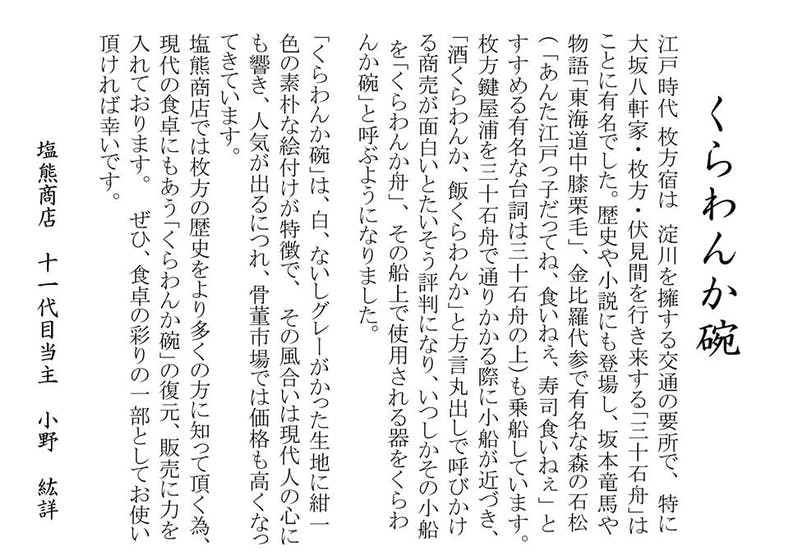 くらわんか碗
江戸時代 枚方宿は 淀川を擁する交通の要所で、特に
大坂八軒家・枚方・伏見間を行き来する「三十石舟」は
ことに有名でした。歴史や小説にも登場し、坂本竜馬や
物語「東海道中膝栗毛」、金比羅代参で有名な森の石松
(「あんた江戸っ子だってね、食いねぇ、寿司食いねぇ」と
すすめる有名な台詞は三十石舟の上)も乗船しています。
枚方鍵屋浦を三十石舟で通りかかる際に小船が近づき、
「酒くらわんか、飯くらわんか」と方言丸出しで呼びかけ
る商売が面白いとたいそう評判になり、いつしかその小船
を「くらわんか舟」、その船上で使用される器をくらわ
んか碗」と呼ぶようになりました。
「くらわんか碗」は、白、ないしグレーがかった生地に紺一
色の素朴な絵付けが特徴で、その風合いは現代人の心に
も響き、人気が出るにつれ、骨董市場では価格も高くなっ
てきています。
塩熊商店では枚方の歴史をより多くの方に知って頂く為、
現代の食卓にもあう「くらわんか碗」の復元、販売に力を
入れております。 ぜひ、食卓の彩りの一部としてお使い
頂ければ幸いです。
塩熊商店 十一代目当主 小野 紘詳